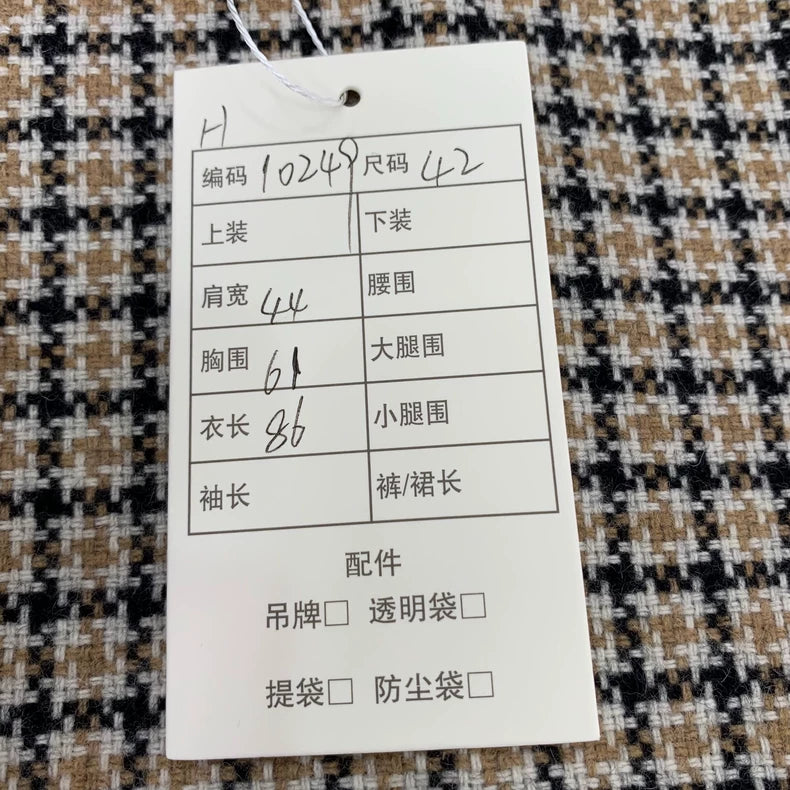 H
编码 10249 尺码 42
上装 下装
肩宽 44 腰围
胸围 61 大腿围
衣长 86 小腿围
袖长 裤/裙长
配件
吊牌□ 透明袋□
提袋□ 防尘袋□